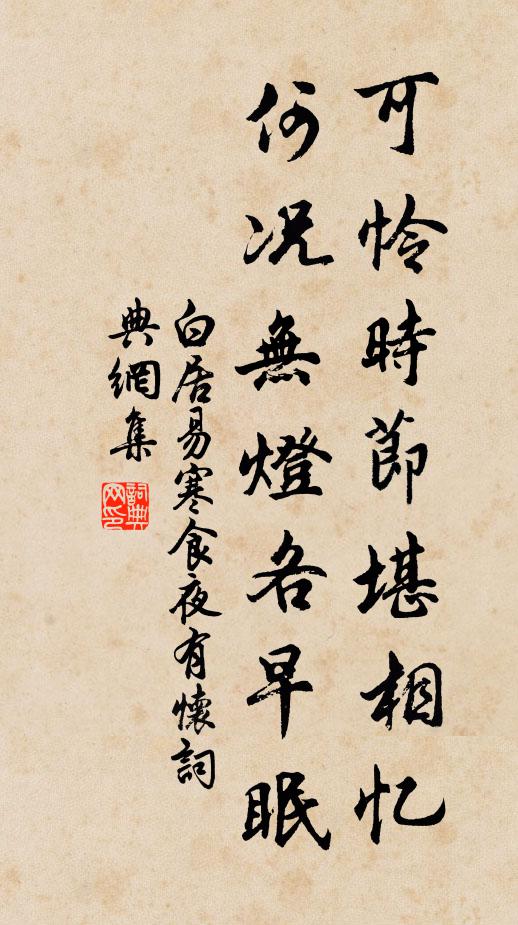 可怜時節堪相忆
何况無燈各早眠
白居易寒食夜有懷詞
典網集
詞典
网印